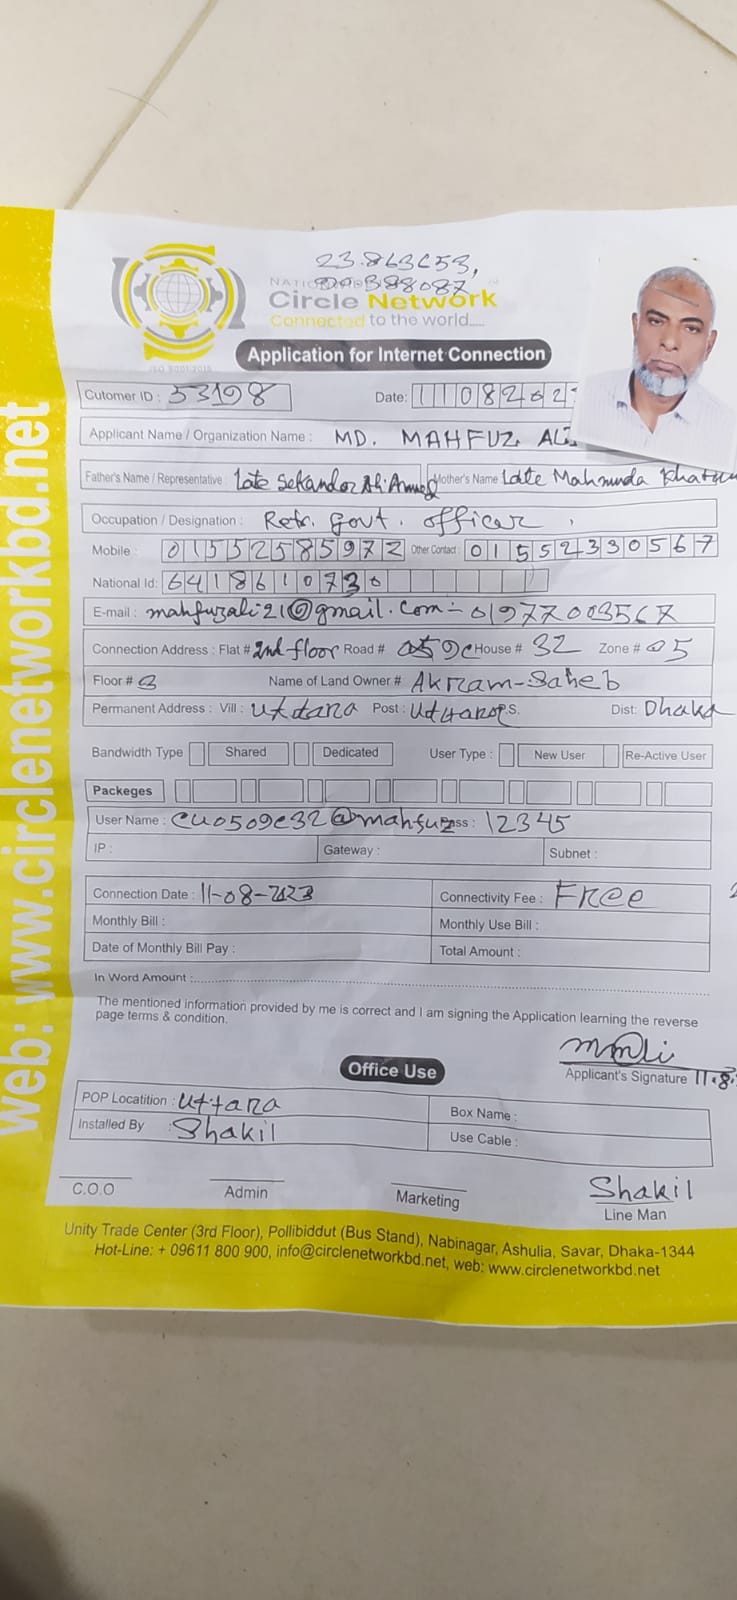 23.863653,
90.388087
Circle Network
Connected to the world.....
Application for Internet Connection
Cutomer ID : 53198 Date: 1108202
Applicant Name / Organization Name : MD. MAHFUZ ALI
Father's Name / Representative : Late Sekandor Ali Ahmed Mother's Name Late Mahmuda Khatun
Occupation / Designation : Retr. Govt. officer
Mobile : 01552585972 Other Contact : 01552330567
National Id: 6418610730
E-mail : mahfuzali21@gmail.com - 01977003567
Connection Address : Flat # 2nd floor Road # House # 32 Zone # 05
Floor # Name of Land Owner # Akram-Saheb
Permanent Address : Vill : Uttara Post : Uttara P.S. Dist: Dhaka
Bandwidth Type Shared Dedicated User Type : New User Re-Active User
Packeges
User Name : cu0509c32@mahfuz Pass : 12345
IP : Gateway : Subnet :
Connection Date : 11-08-2023 Connectivity Fee : Free
Monthly Bill : Monthly Use Bill :
Date of Monthly Bill Pay : Total Amount :
In Word Amount :
The mentioned information provided by me is correct and I am signing the Application learning the reverse
page terms & condition.
Applicant's Signature 11.8.
Office Use
POP Locatition : Uttara Box Name :
Installed By : Shakil Use Cable :
C.O.O Admin Marketing Shakil
Line Man
Unity Trade Center (3rd Floor), Pollibiddut (Bus Stand), Nabinagar, Ashulia, Savar, Dhaka-1344
Hot-Line: + 09611 800 900, info@circlenetworkbd.net, web: www.circlenetworkbd.net
web: www.circlenetworkbd.net